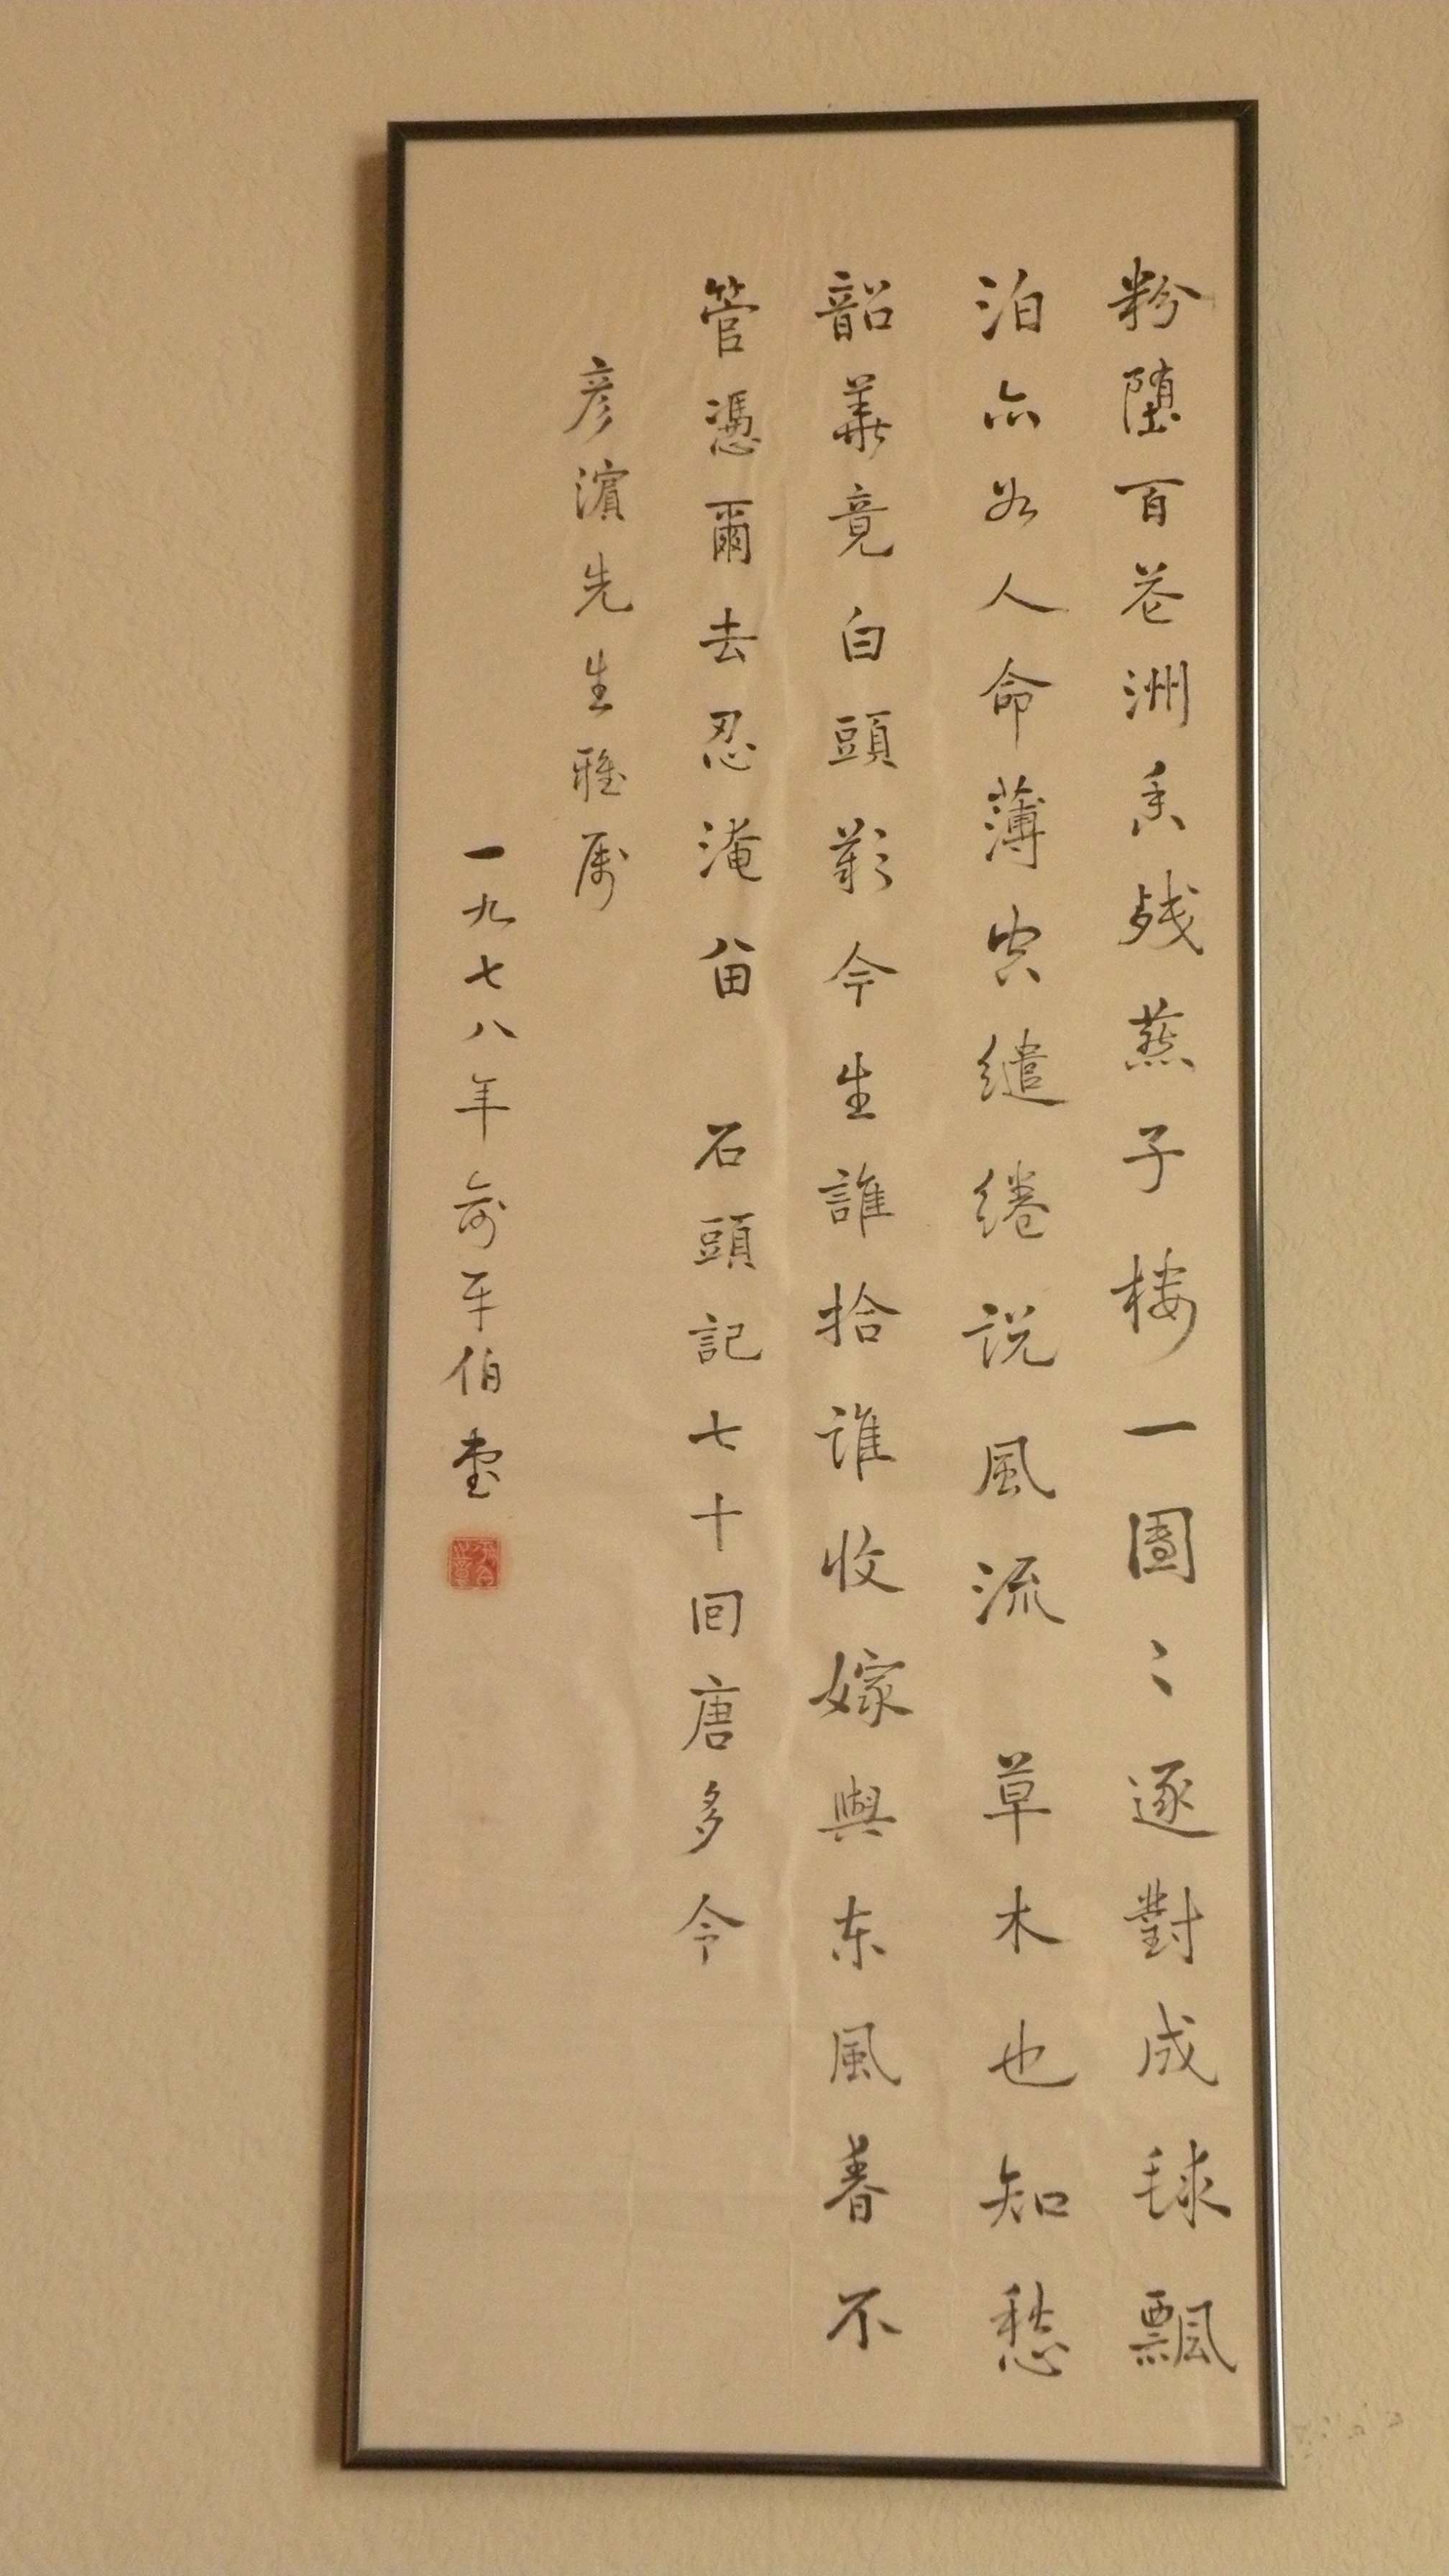 粉堕百花洲香残燕子楼一團〻逐對成毬飄
泊亦如人命薄空繾綣説風流 草木也知愁
韶華竟白頭歎今生誰拾誰收嫁與东風春不
管憑爾去忍淹留 石頭記七十回唐多令
彦濱先生雅属
一九七八年俞平伯書